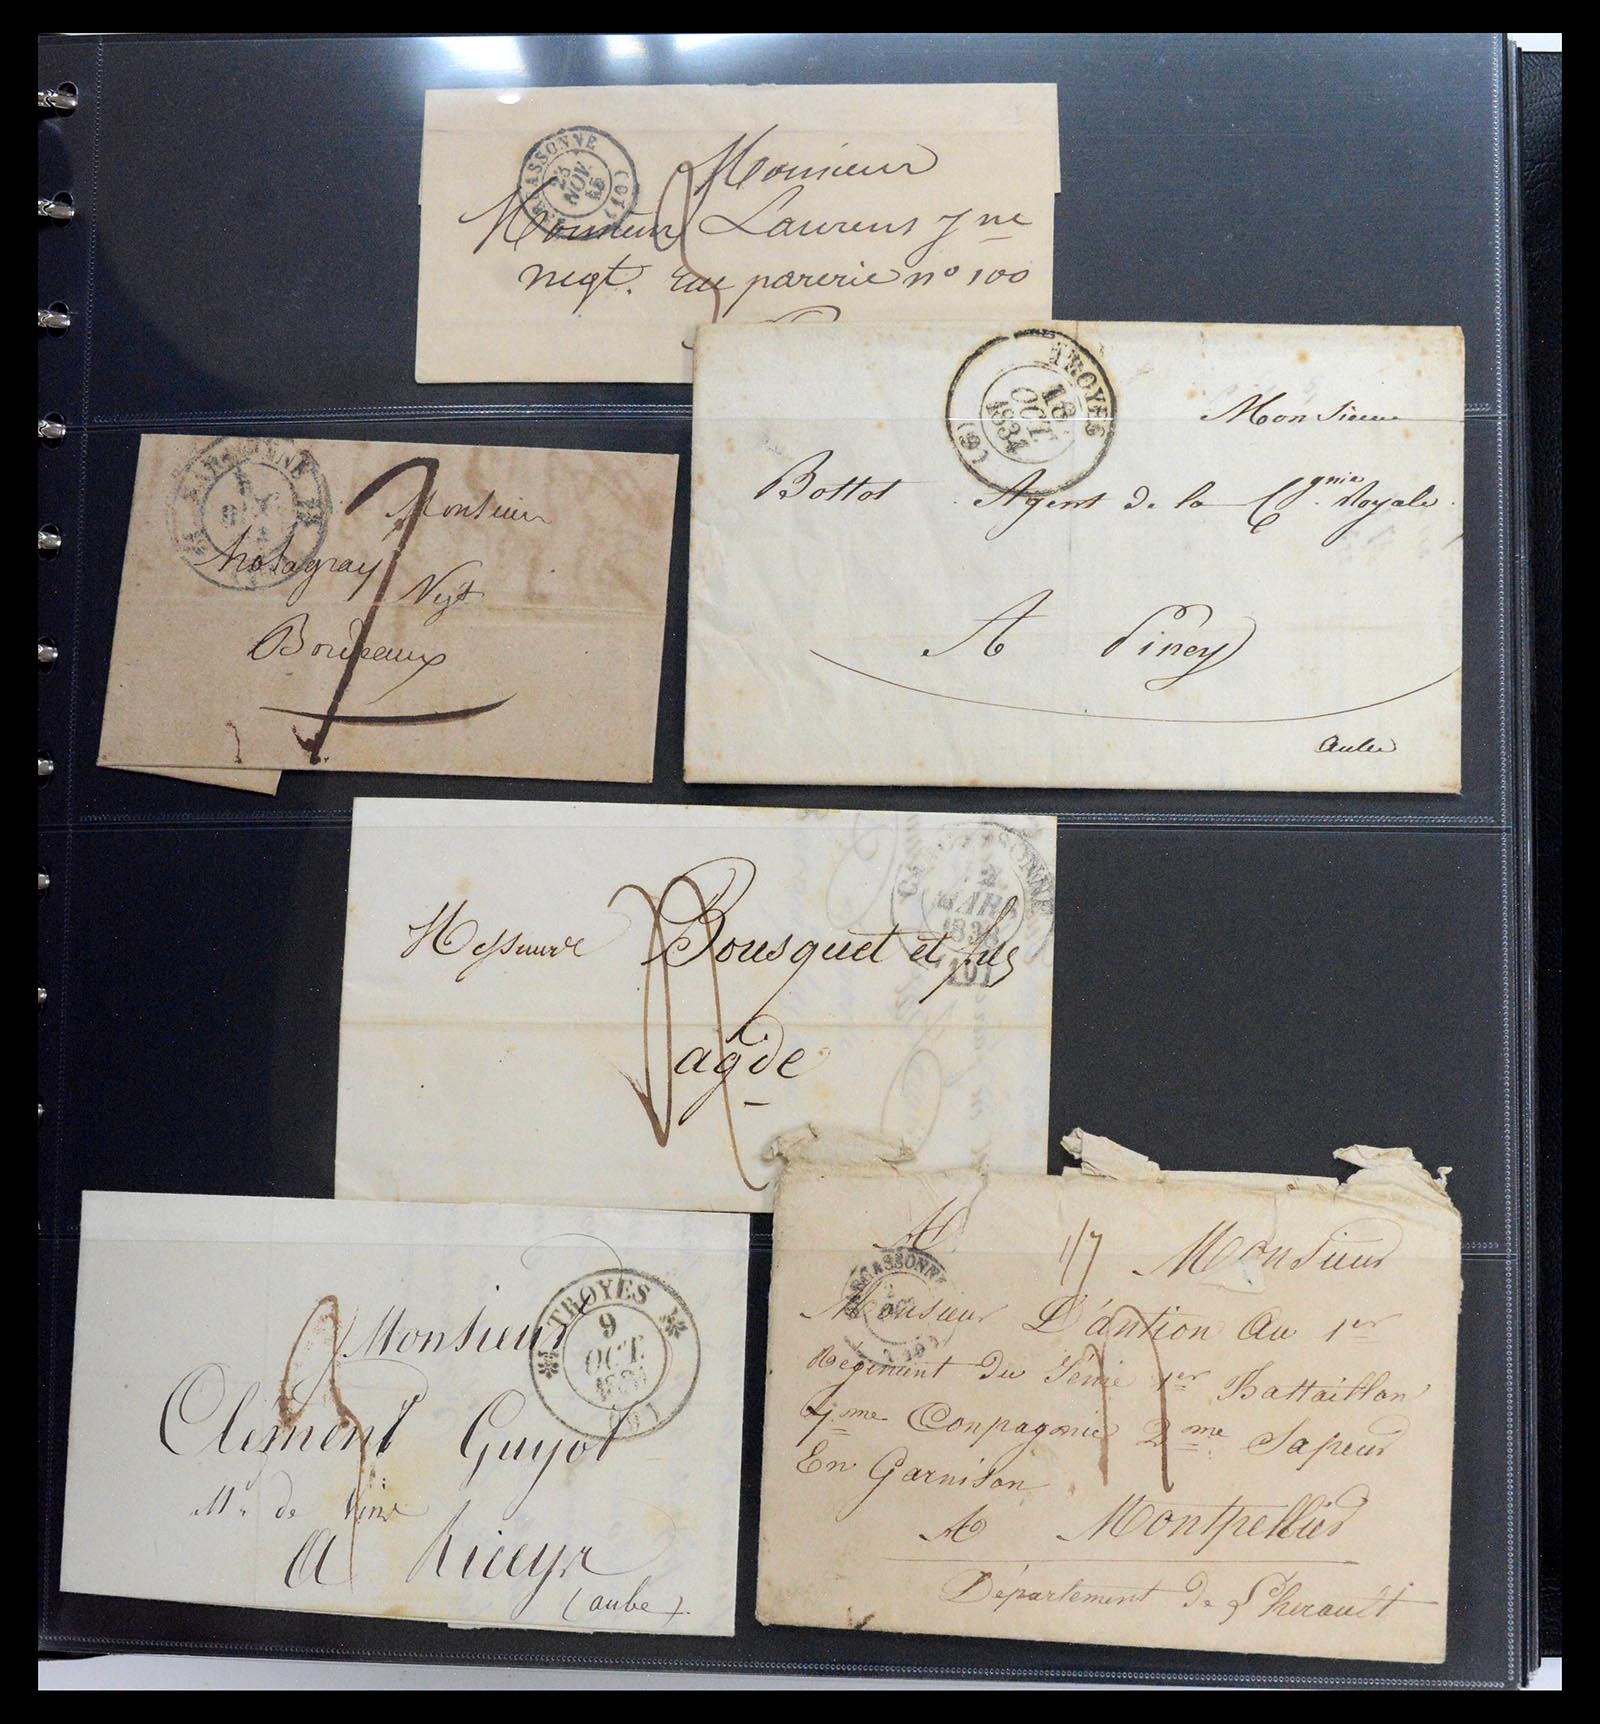 CARCASSONNE (10)
23
NOV.
45
Monsieur
Monsieur Laurens Jne
negt. rue parerie no 100
TROYES (9)
18
OCT.
1834
Monsieur
Bottot Agent de la Cgnie Royale
A Piney
Aube
NARBONNE
Monsieur
Negt
Bordeaux
CARCASSONNE (10)
MARS
1838
Messieurs Bousquet et fils
agde
TROYES (9)
9
OCT.
Monsieur
Clément Guyot
Md de Vins
A Riceys
(aube).
CARCASSONNE (10)
A Monsieur
1/7
Monsieur D'antion Au 1er
Regiment Du Génie 1er Battaillon
7.me Conpagnie 2me Sapeur
En Garnison
A Montpellier
Département De L'herault